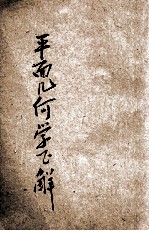 平面几何学正解